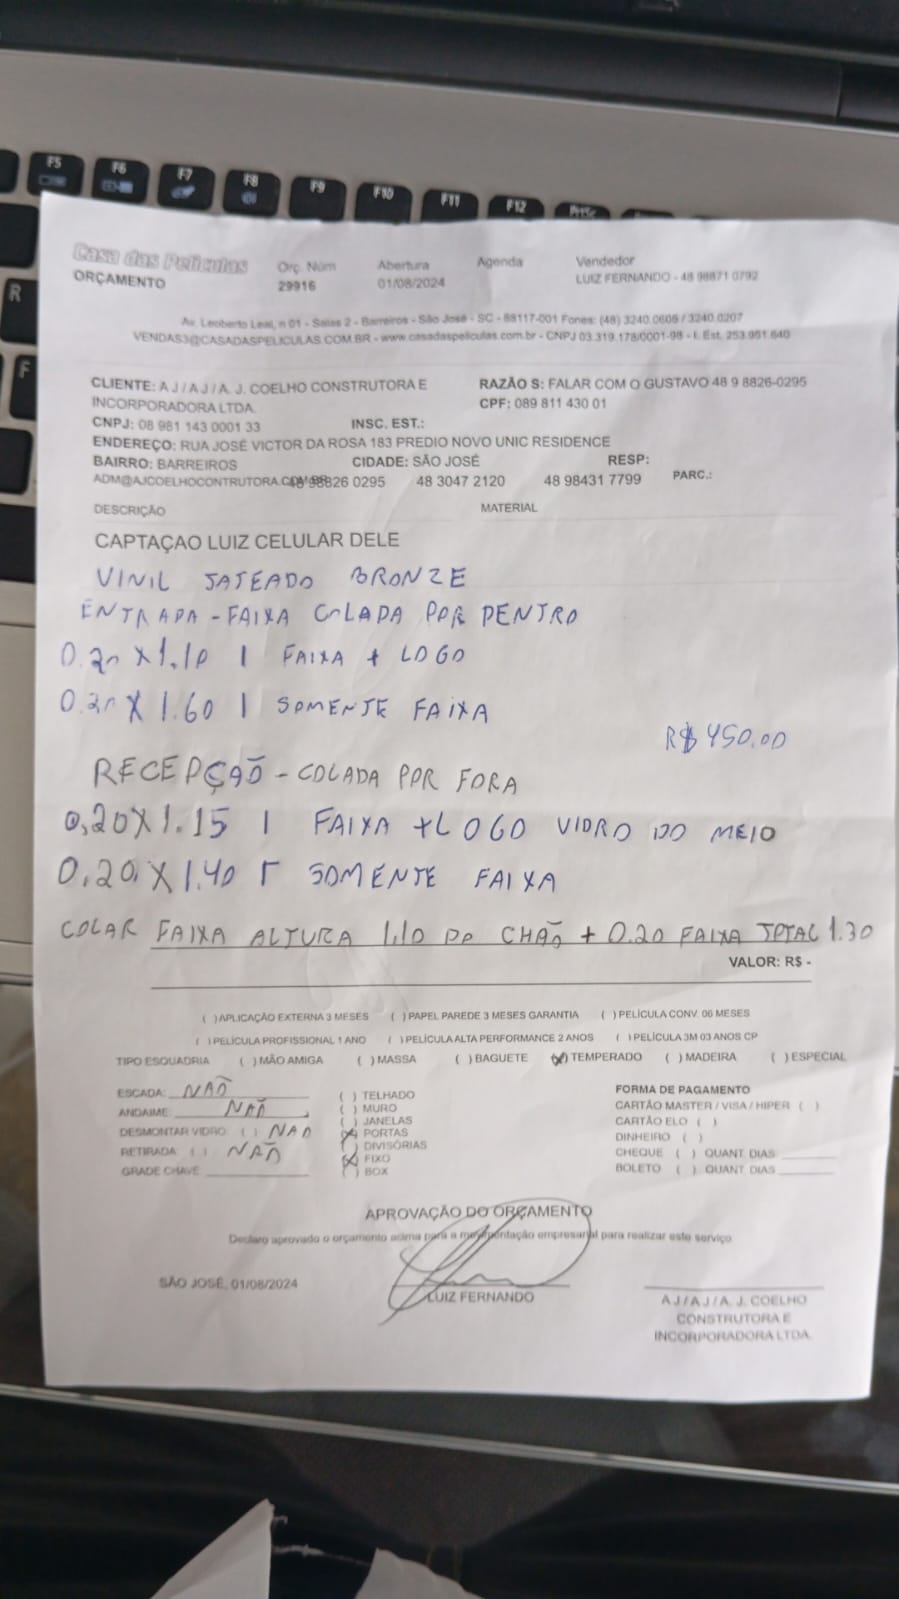 F5 F6 F7 F8 F9 F10 F11 F12 PrtSc
R
F
Casa das Peliculas
ORÇAMENTO
Orç. Núm
29916
Abertura
01/08/2024
Agenda
Vendedor
LUIZ FERNANDO - 48 98871 0792
Av. Leoberto Leal, n 01 - Salas 2 - Barreiros - São José - SC - 88117-001 Fones: (48) 3240.0606 / 3240.0207
VENDAS3@CASADASPELICULAS.COM.BR - www.casadaspeliculas.com.br - CNPJ 03.319.178/0001-98 - I. Est. 253.951.640
CLIENTE: A J / A J / A. J. COELHO CONSTRUTORA E
INCORPORADORA LTDA.
RAZÃO S: FALAR COM O GUSTAVO 48 9 8826-0295
CPF: 089 811 430 01
CNPJ: 08 981 143 0001 33 INSC. EST.:
ENDEREÇO: RUA JOSÉ VICTOR DA ROSA 183 PREDIO NOVO UNIC RESIDENCE
BAIRRO: BARREIROS CIDADE: SÃO JOSÉ RESP:
ADM@AJCOELHOCONTRUTORA.COM.BR 48 98826 0295 48 3047 2120 48 98431 7799 PARC.:
DESCRIÇÃO MATERIAL
CAPTAÇAO LUIZ CELULAR DELE
VINIL JATEADO BRONZE
ENTRADA - FAIXA COLADA POR DENTRO
0.20 X 1.10 1 FAIXA + LOGO
0.20 X 1.60 1 SOMENTE FAIXA
R$ 450.00
RECEPÇÃO - COLADA POR FORA
0,20 X 1.15 1 FAIXA + LOGO VIDRO DO MEIO
0.20 X 1.40 1 SOMENTE FAIXA
COLAR FAIXA ALTURA 1.10 DO CHÃO + 0.20 FAIXA TOTAL 1.30
VALOR: R$ -
( ) APLICAÇÃO EXTERNA 3 MESES ( ) PAPEL PAREDE 3 MESES GARANTIA ( ) PELÍCULA CONV. 06 MESES
( ) PELÍCULA PROFISSIONAL 1 ANO ( ) PELÍCULA ALTA PERFORMANCE 2 ANOS ( ) PELÍCULA 3M 03 ANOS CP
TIPO ESQUADRIA ( ) MÃO AMIGA ( ) MASSA ( ) BAGUETE (X) TEMPERADO ( ) MADEIRA ( ) ESPECIAL
ESCADA: NAÕ
ANDAIME: NAÕ
DESMONTAR VIDRO: ( ) NAO
RETIRADA: ( ) NAÕ
GRADE CHAVE:
( ) TELHADO
( ) MURO
( ) JANELAS
(X) PORTAS
( ) DIVISÓRIAS
(X) FIXO
( ) BOX
FORMA DE PAGAMENTO
CARTÃO MASTER / VISA / HIPER ( )
CARTÃO ELO ( )
DINHEIRO ( )
CHEQUE ( ) QUANT. DIAS
BOLETO ( ) QUANT. DIAS
APROVAÇÃO DO ORÇAMENTO
Declaro aprovado o orçamento acima para a movimentação empresarial para realizar este serviço
SÃO JOSÉ, 01/08/2024
LUIZ FERNANDO
A J / A J / A. J. COELHO
CONSTRUTORA E
INCORPORADORA LTDA.